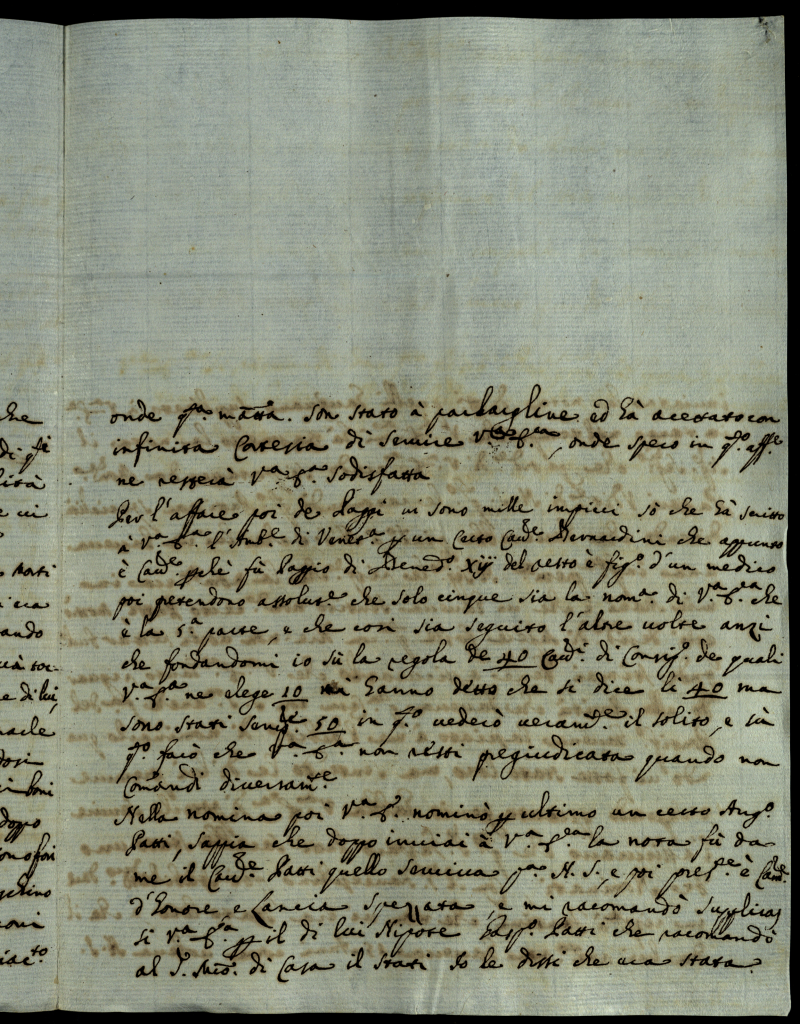 che
di qsti
ità
e vi
Morti
era
ando
rà tor-
e di lui,
in boni
doppo
oni
onde qta. matta. Son stato à parlargline ed hà accettato con
infinita Cortesia di Servire V.a E.a, onde spero in qto. affe.
ne resterà V.a E.a Sodisfatta
Per l'affare poi de Paggi vi sono mille impicci sò che hà scritto
à V.a E.a l'Ambe. di Venezia p un Certo Cavre. Bernardini che appunto
è Cavre. pchè fù Paggio di Bened.o Xiij del resto è fig.o d'un medico
poi pretendono assolute. che solo cinque sia la nom.a di V.a E.a che
è la 5.a parte, e che così sia seguito l'altre volte anzi
che fondandomi io sù la regola de 40 Cavri. di Conrig.o de quali
V.a E.a ne elege 10 mi hanno detto che si dice li 40 ma
sono stati Sempre 50 in qto. vederò veramte. il solito, e sù
qto. farò che V.a E.a non resti pregiudicata quando non
Comandi diversamte.
Nella nomina poi V.a E. nominò p ultimo un certo Ang.o
Patti, Sappia che doppo inviai à V.a E.a la nota fù da
me il Cavre. Patti quello Serviva pa. N. S., e poi prest.e è Camre.
d'Honore, e Lancia Spezzata, e mi racomandò Supplicas
si V.a E.a p il di lui Nipote Gasp.o Patti che racomandò
al S. Suo. di Casa il Stati Io le dissi che era stata